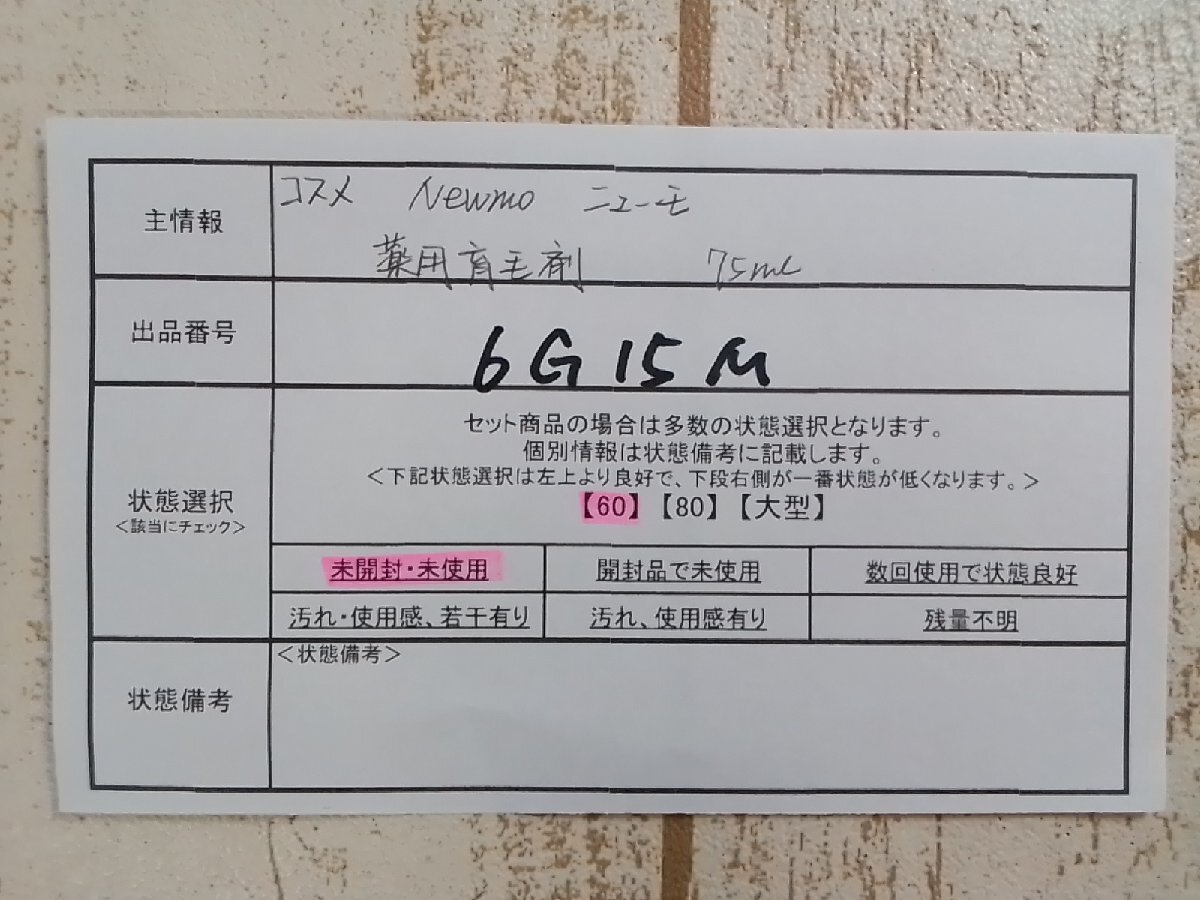 主情報
コスメ Newmo ニューモ
薬用育毛剤 75ml
出品番号
6G15M
状態選択
<該当にチェック>
セット商品の場合は多数の状態選択となります。
個別情報は状態備考に記載します。
<下記状態選択は左上より良好で、下段右側が一番状態が低くなります。>
【60】【80】【大型】
未開封・未使用 開封品で未使用 数回使用で状態良好
汚れ・使用感、若干有り 汚れ、使用感有り 残量不明
状態備考
<状態備考>